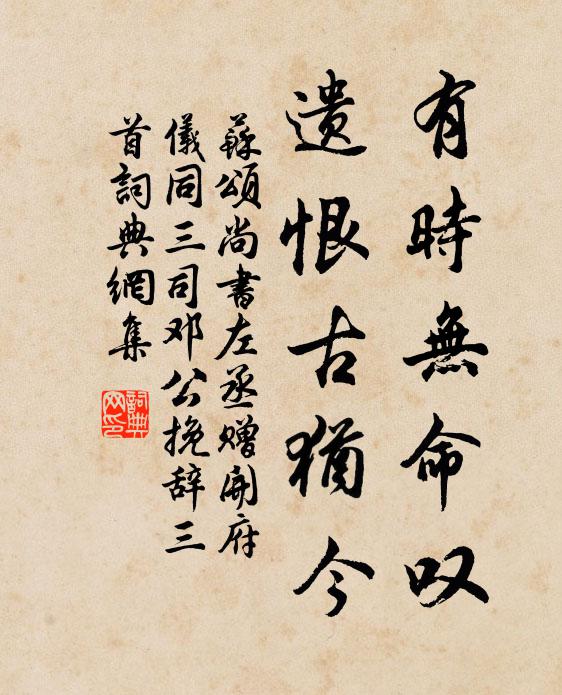 有時無命叹
遗恨古猶今
蘇頌尚書左丞赠開府
儀同三司邓公挽辞三
首詞典網集
詞典
网印